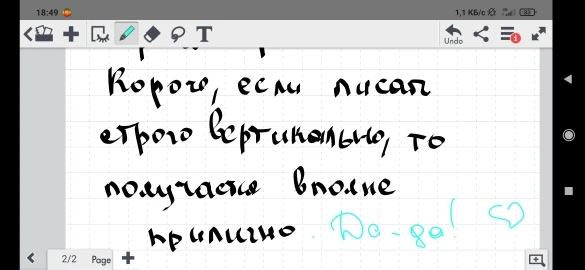 18:49 1,1 КБ/с 83
T Undo 1
Короче, если писать
строго вертикально, то
получается вполне
прилично. Да-да!
2/2 Page